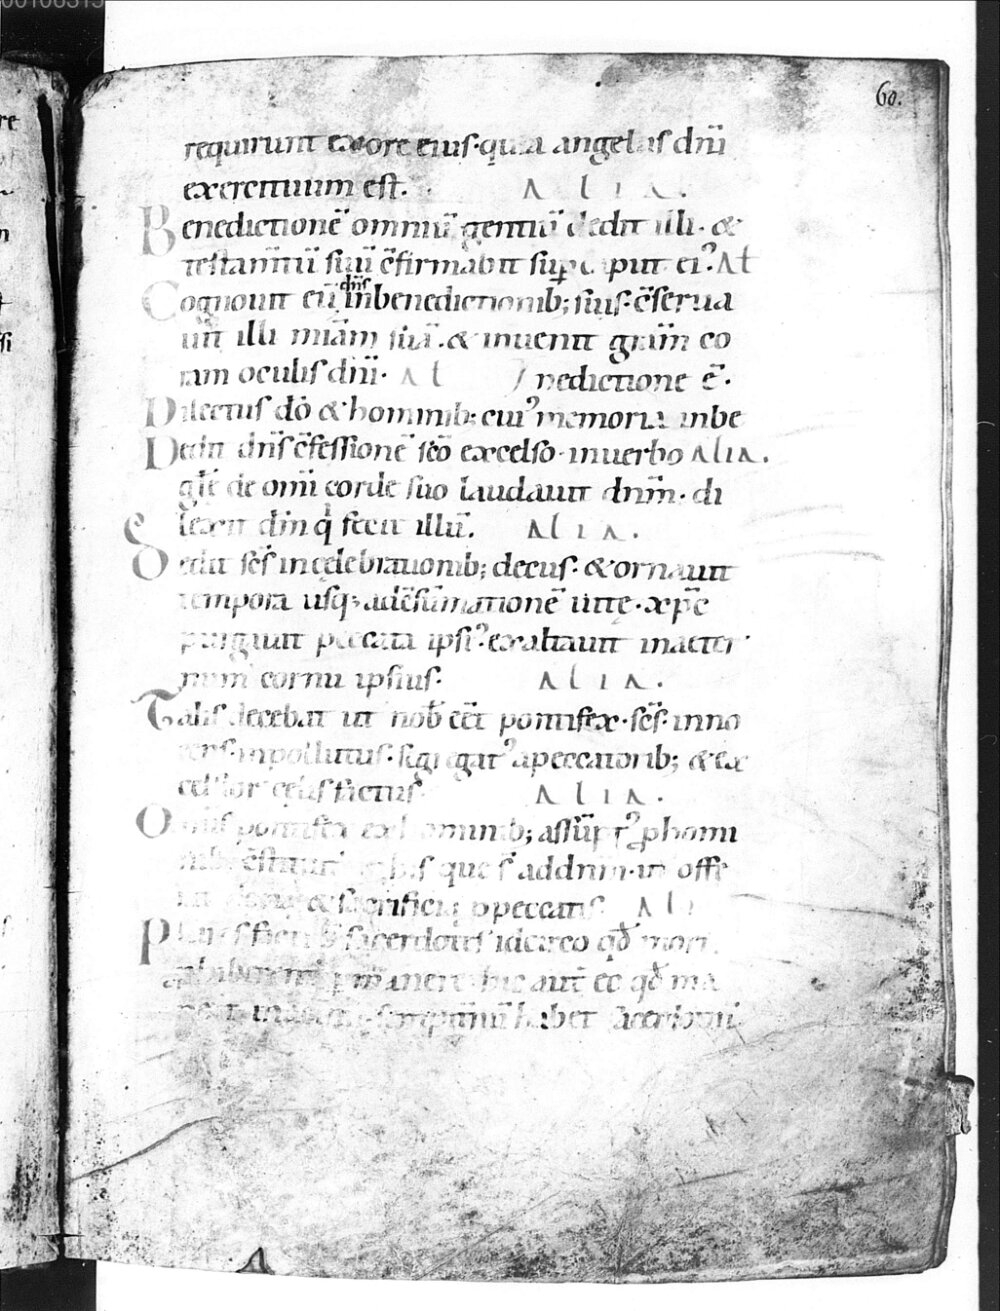 60.
requirunt ex ore eius · quia angelus dn̄i
exercituum est. ALIA.
Benedictionē omniū gentiū dedit illi · &
testam̄tū suū c̄firmabit sup̱ caput ei᾿ · Al
Cognouit eū dn̄s in benedictionib; suis · c̄serua
uit illi miām suā · & inuenit grām co
ram oculis dn̄i · Al nedictione ē ·
Dilectus dō & hominib; cui᾿ memoria inbe
Dedit dn̄s c̄fessionē sc̄o excelso · in uerbo ALIA.
glē de omī corde suo laudauit dnm̄ · di
lexit dm̄ q̇ fecit illū. ALIA.
Dedit sēs in celebrationib; decus · & ornauit
tempora usq; ad c̄sūmationē uitę · xp̄c
purgauit peccata ipsi᾿ · exaltauit in aeter
num cornu ipsius · ALIA.
Talis decebat ut nob̄ eēt pontifex · sc̄s · inno
cens · inpollutus · segregat᾿ a peccatorib; & ex
celsior celis factus · ALIA.
Omīs pontifex ex hominib; assūpt᾿ p̱ homi
nib; c̄stituit᾿ his que s̄ ad dnm̄ · ut offe
rat dona & sacrificia p̱ peccatis · Ali
Plures facti s̄ sacerdotes idcirco qđ mori
p̱manere · hic aut̄ eo qđ ma
habet sacerdotiū